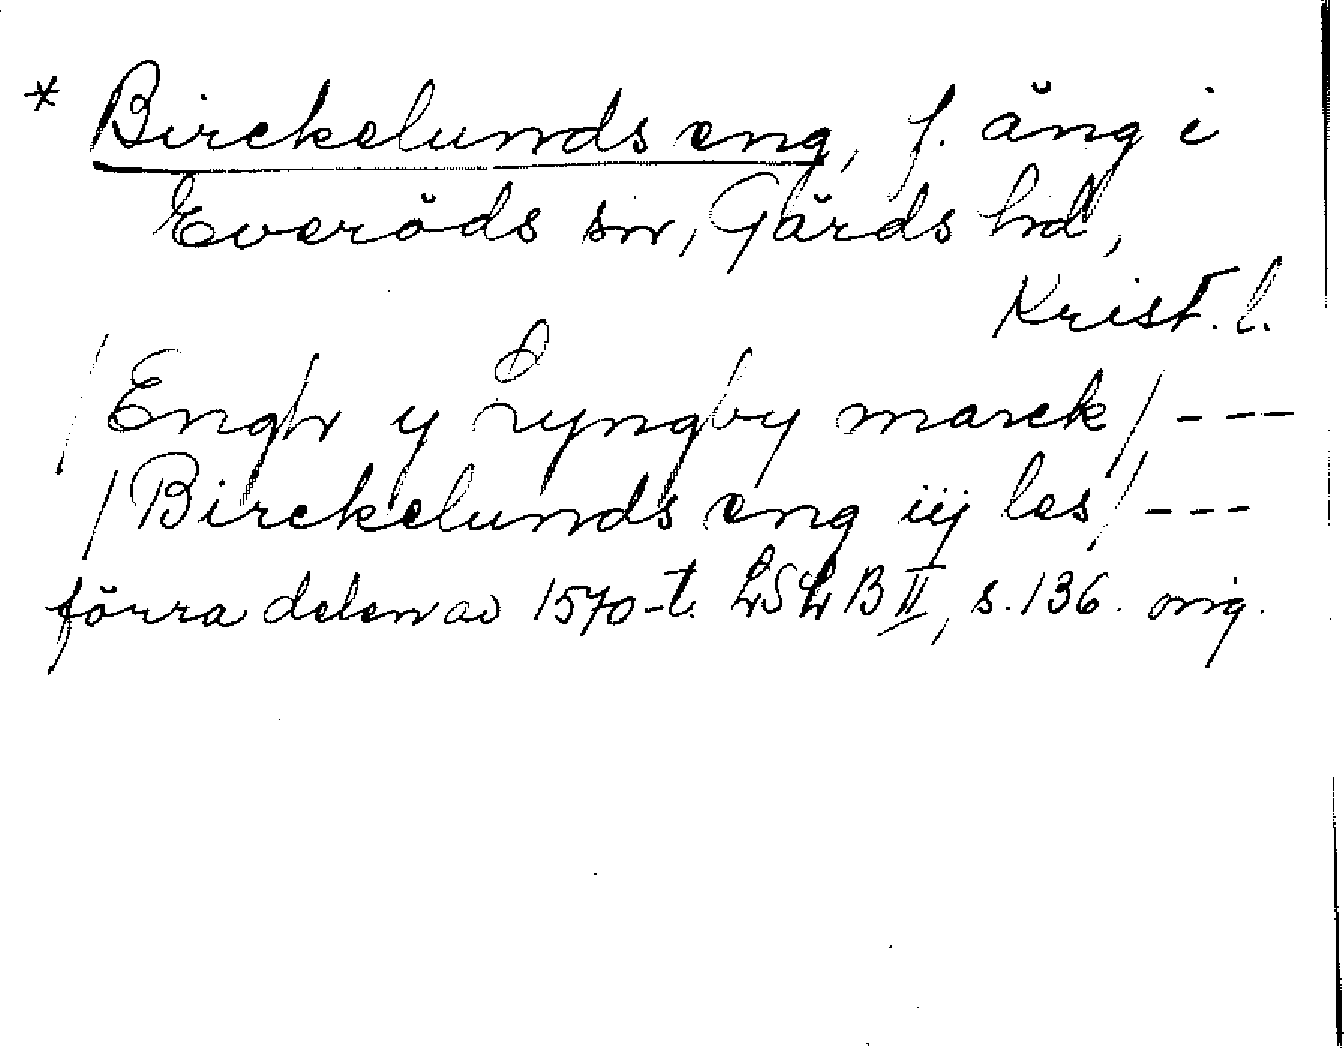 * Birckelunds eng, f. äng i
Everöds sn, Gärds hd,
Krist. l.
/Enghr y Lyngby marck/ ---
/Birckelunds eng iij les/ ---
förra delen av 1570-t. LSLB II, s. 136. orig.